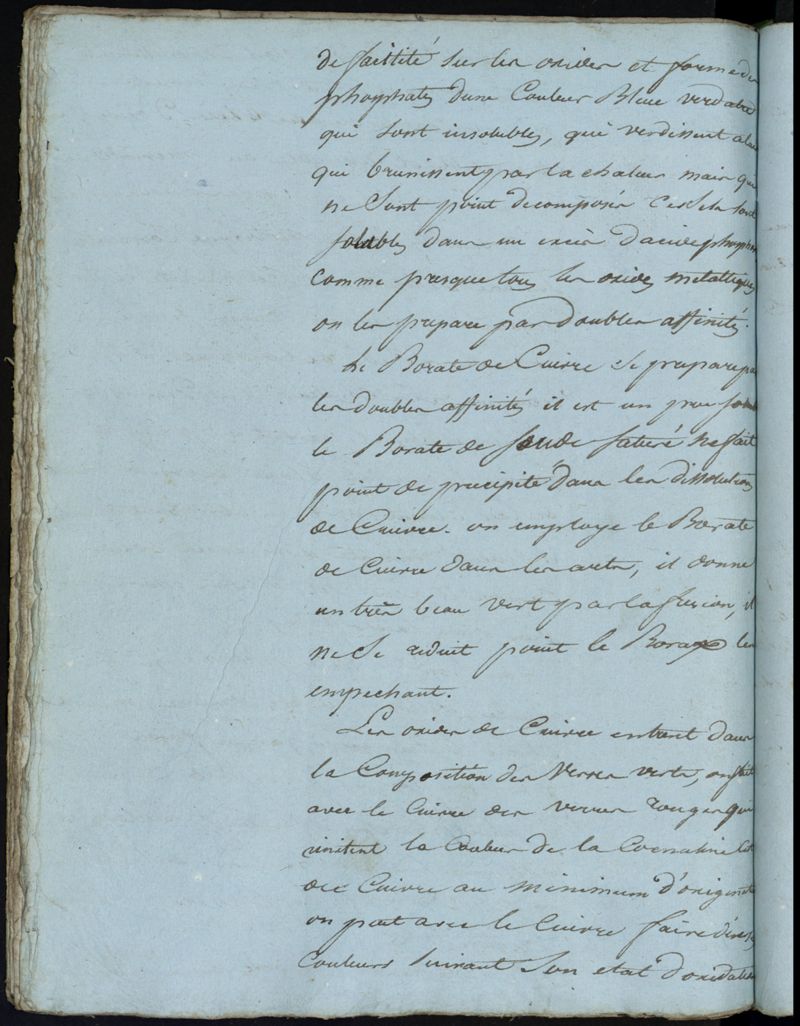 de facilité sur les oxides et forme des
phosphates d'une Couleur Bleue verdatre
qui sont insolubles, qui verdissent a l'air
qui brunissent par la chaleur mais qui
ne Sont point decomposés Ces Sels sont
solubles dans un excès d'acide phosph
comme presque tous les oxides metalliques
on les prepare par doubles affinités.
Le Borate de Cuivre se prepare par
les doubles affinités il est un peu
le Borate de soude saturé ne fait
point de precipité dans les dissolutions
de Cuivre. on employe le Borate
de Cuivre dans les arts, il donne
un très beau vert par la fusion, il
ne Se reduit point le Borax les
empechant.
Les oxides de Cuivre entrent dans
la Composition des Verres verts, on fait
avec le Cuivre des verres rouges qui
imitent la Couleur de la Cornaline
de Cuivre au minimum d'oxigene
on peut avec le Cuivre faire diverses
Couleurs suivant Son etat d'oxidation